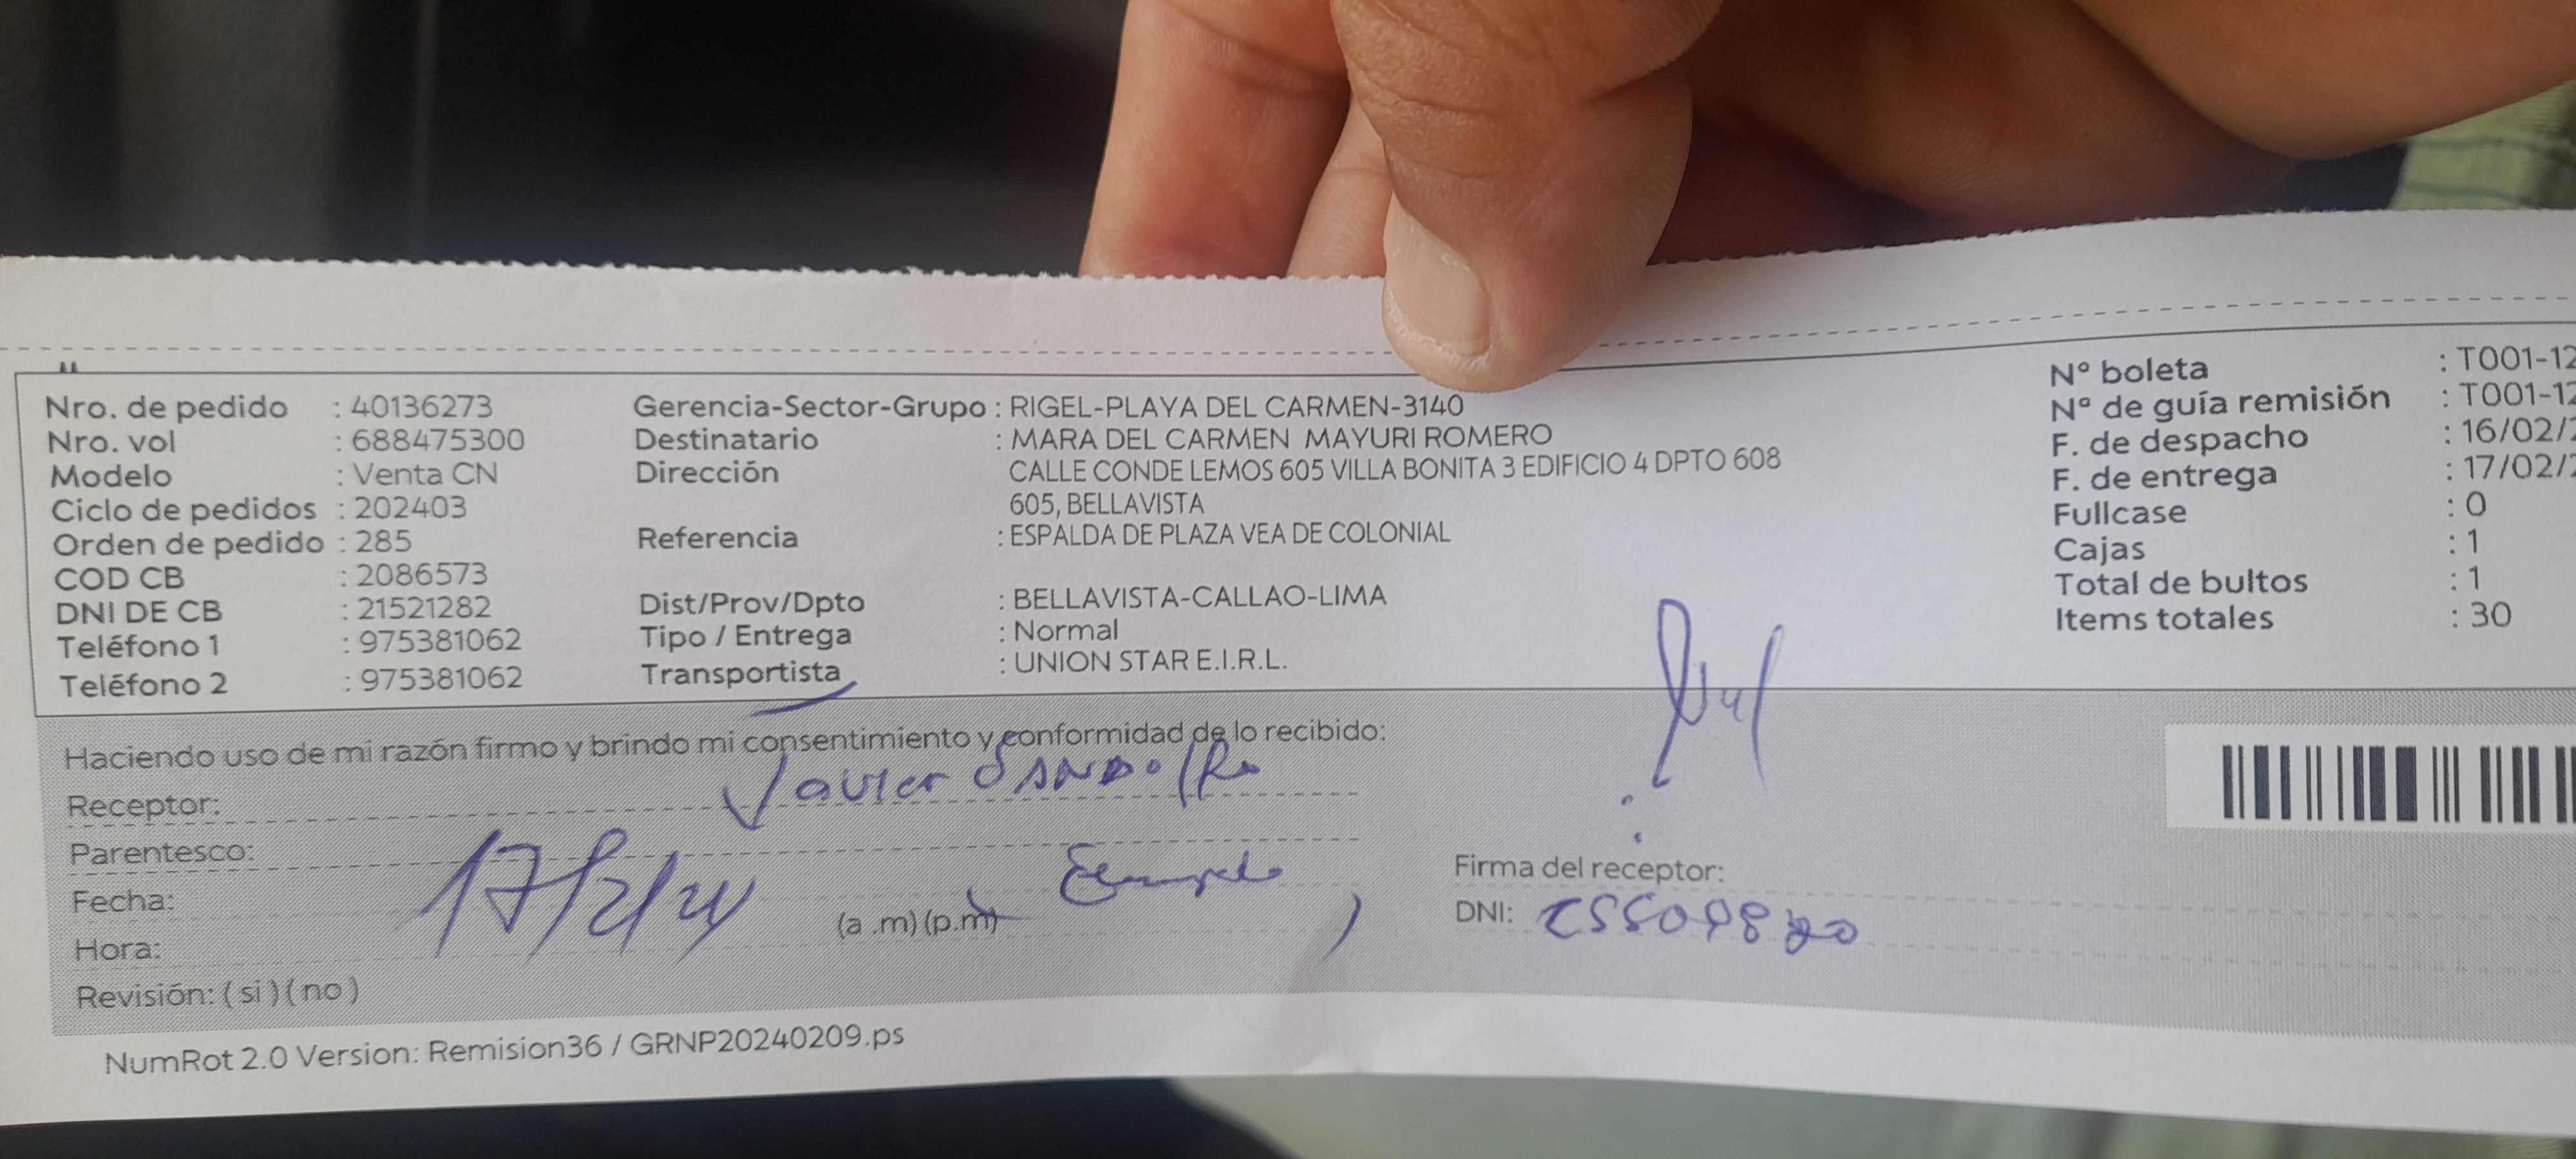 Nro. de pedido : 40136273
Nro. vol : 688475300
Modelo : Venta CN
Ciclo de pedidos : 202403
Orden de pedido : 285
COD CB : 2086573
DNI DE CB : 21521282
Teléfono 1 : 975381062
Teléfono 2 : 975381062
Gerencia-Sector-Grupo : RIGEL-PLAYA DEL CARMEN-3140
Destinatario : MARA DEL CARMEN MAYURI ROMERO
Dirección CALLE CONDE LEMOS 605 VILLA BONITA 3 EDIFICIO 4 DPTO 608
605, BELLAVISTA
Referencia : ESPALDA DE PLAZA VEA DE COLONIAL
Dist/Prov/Dpto : BELLAVISTA-CALLAO-LIMA
Tipo / Entrega : Normal
Transportista : UNION STAR E.I.R.L.
N° boleta : T001-12
N° de guía remisión : T001-12
F. de despacho : 16/02/2
F. de entrega : 17/02/2
Fullcase : 0
Cajas : 1
Total de bultos : 1
Items totales : 30
Haciendo uso de mi razón firmo y brindo mi consentimiento y conformidad de lo recibido:
Receptor: Javier
Parentesco:
Fecha: 17/2/24
Hora: (a .m) (p.m)
Revisión: ( si ) ( no )
Firma del receptor:
DNI:
NumRot 2.0 Version: Remision36 / GRNP20240209.ps